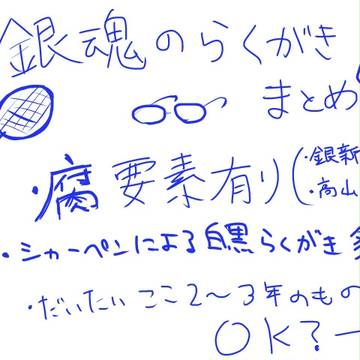 銀魂のらくがき
まとめ
・腐要素有り(・銀新
・高山
・シャーペンによる白黒らくがき多
・だいたいここ2〜3年のもの
OK?→